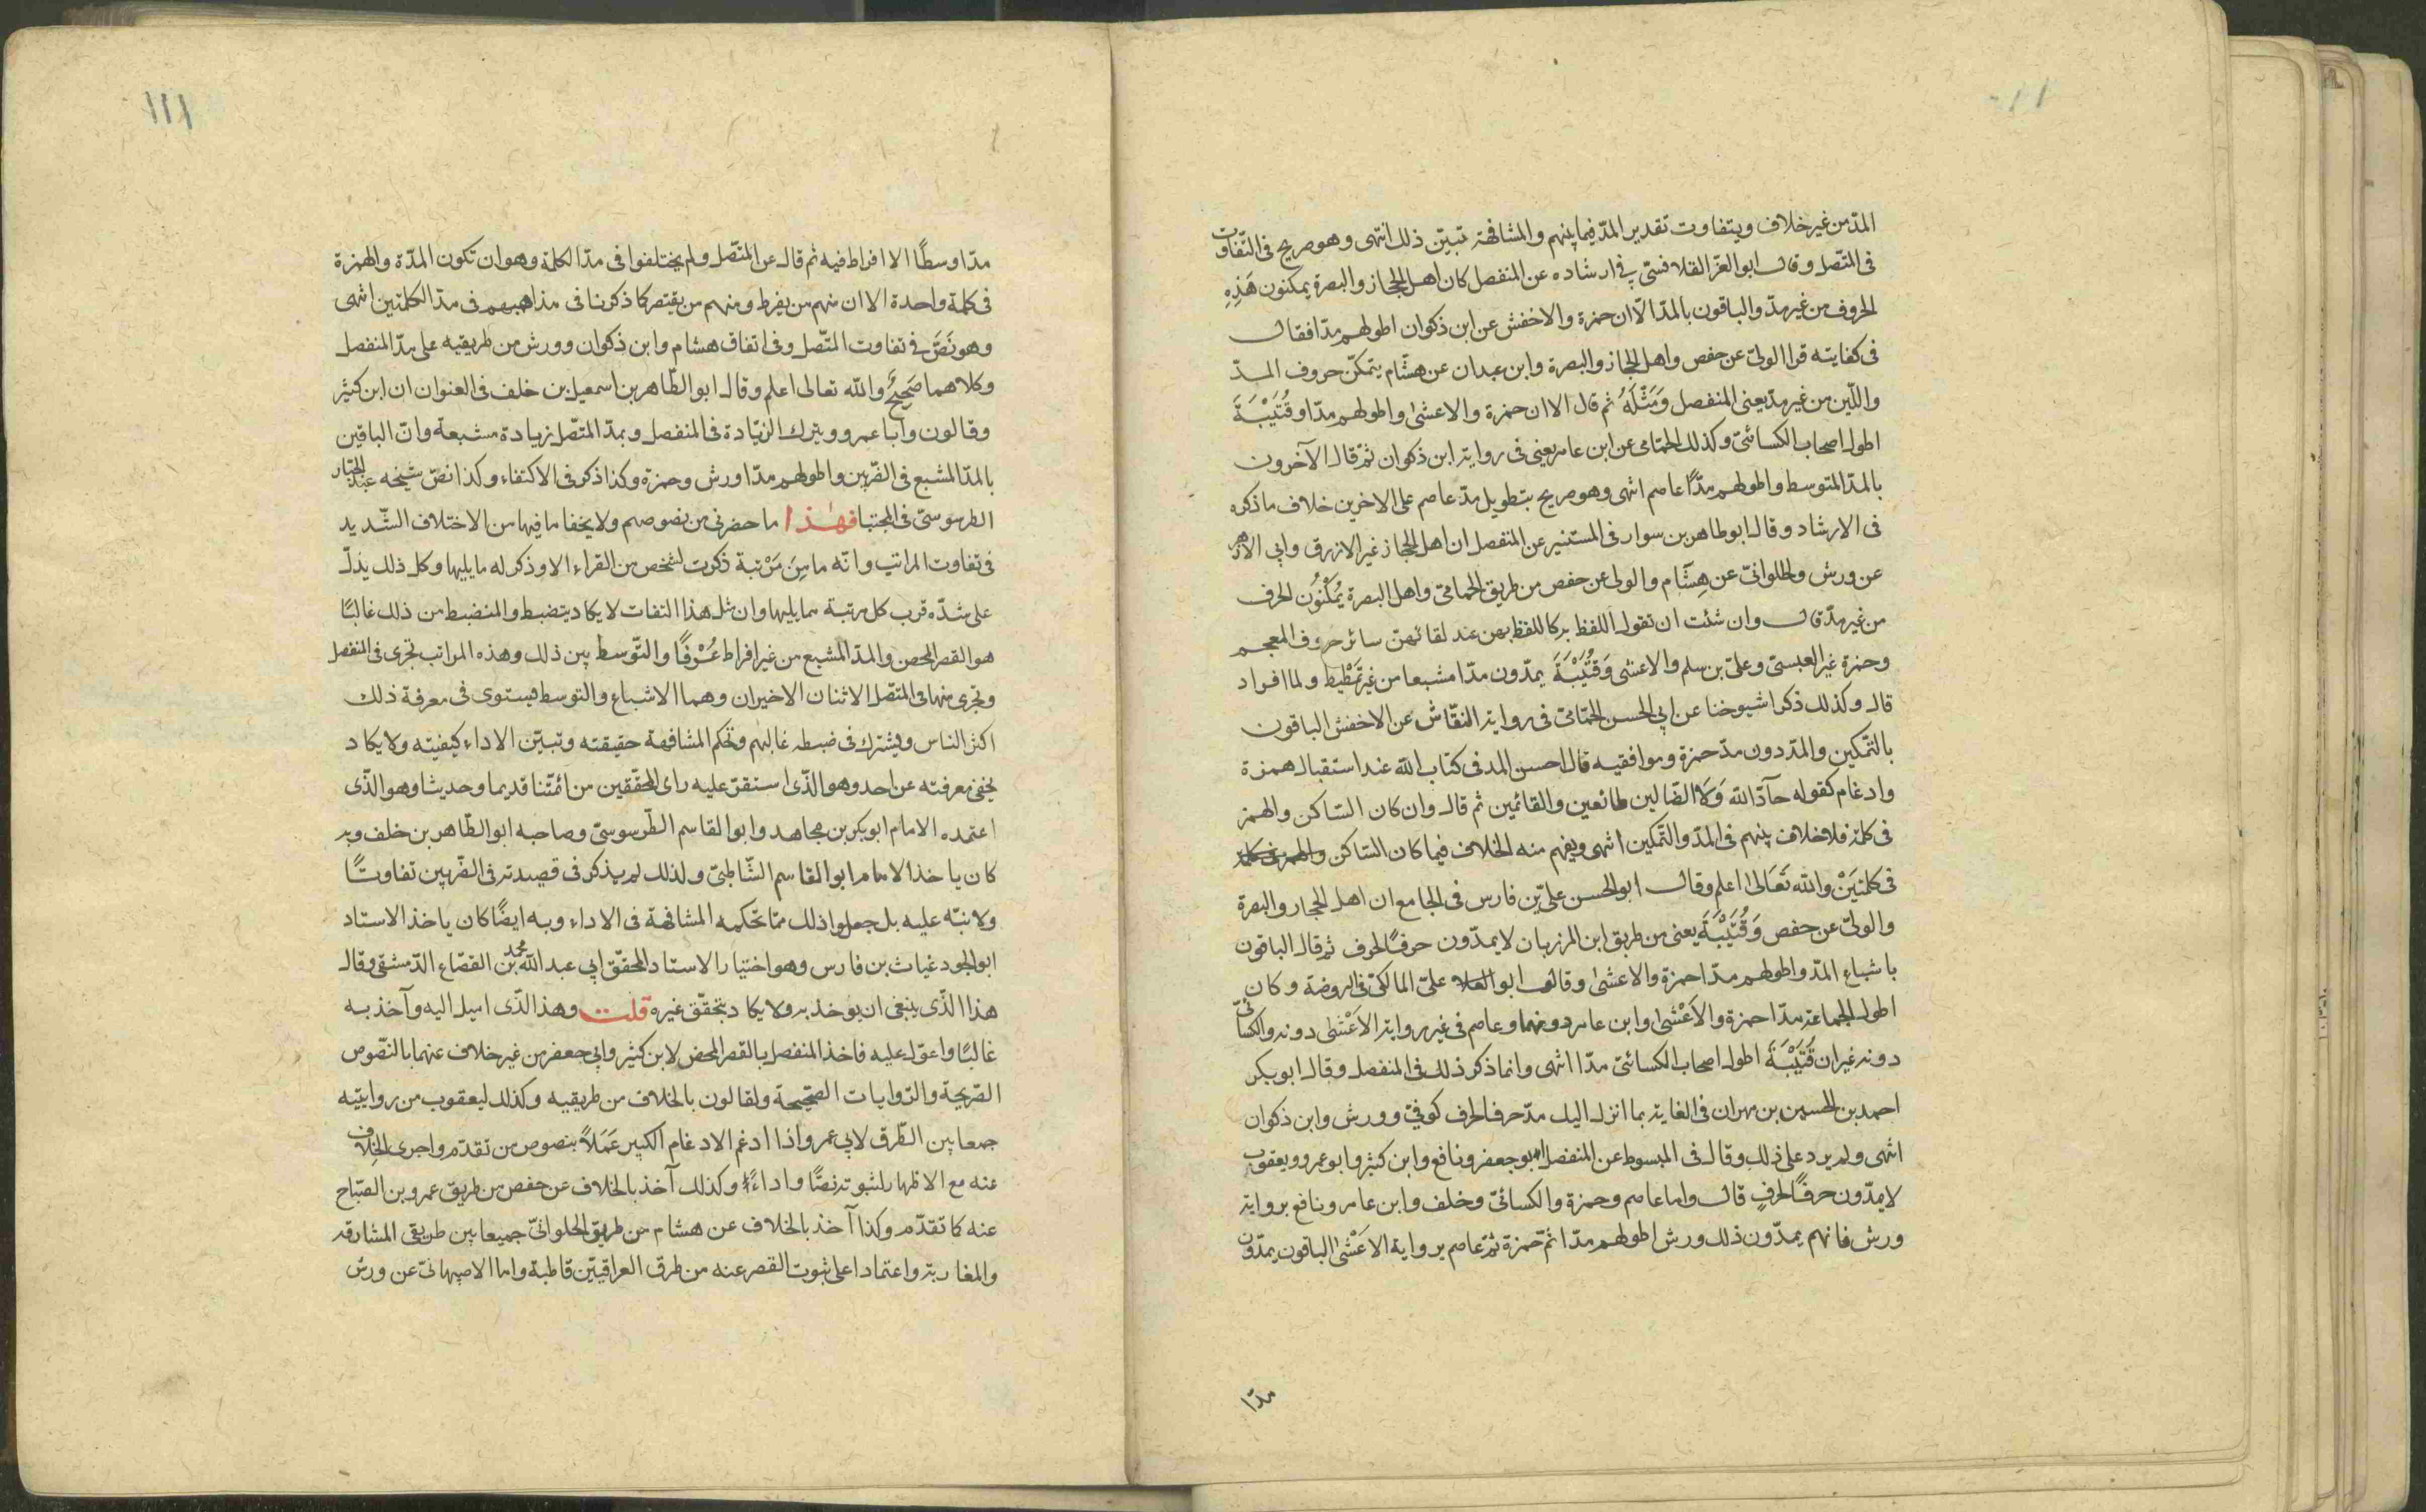 المدّ من غير خلاف ويتفاوت تقدير المدّ فيما بينهم والمشافهة تبيّن ذلك انتهى وهو صريح فى التّفاوت
فى المتّصل وقال ابو العزّ القلانسىّ فى ارشاده عن المنفصل كان اهل الحجاز والبصرة يمكنون هَذِهِ
الحروف من غير مدّ والباقون بالمدّ الّا ان حمزة والاخفش عن ابن ذكوان اطولهم مدّا فقال
فى كفايته قرا الولىّ عن حفص واهل الحجاز والبصرة وابن عبدان عن هشام يتمكّن حروف المدّ
واللّين من غير مدّ يعنى المنفصل وَمَثَّلَهُ ثم قال الا ان حمزة والاعشى واطولهم مدّا وقُتَيْبَةَ
اطول اصحاب الكسائىّ وكذلك الحمّامى عن ابن عامر يعنى فى رواية ابن ذكوان ثمّ قال الآخرون
بالمدّ المتوسط واطولهم مدًّا عاصم انتهى وهو صريح بتطويل مدّ عاصم على الاخرين خلاف ما ذكره
فى الارشاد وقال ابو طاهر بن سوار فى المستنير عن المنفصل ان اهل الحجاز غير الازرق وابى الازهر
عن ورش والحلوانىّ عن هِشَام والولى عن حفص من طريق الحمامىّ واهل البصرة يُمَكّنُون الحرف
من غير مدّ قال وان شئت ان تقول اللفظ به كاللفظ بهن عند لقائهنّ سائر حروف المعجم
وحمزة غير العبسىّ وعلىّ بن سلم والاعشى وَقُتَيْبَةَ يمدّون مدّا مشبعا من غير تَمْطِيط ولما افراد
قال وكذلك ذكر اشيوخنا عن ابى الحسن الحمّامىّ فى رواية النقّاش عن الاخفش الباقون
بالتّمكين والمدّ دون مدّ حمزة وموافقيه قال احسن المد فى كتاب الله عند استقبال همزة
وادغام كقوله حآدّ الله وَلَا الضّالين طائعين والقائمين ثم قال وان كان السّاكن والهمز
فى كلمة فلا خلاف بينهم فى المدّ والتّمكين انتهى ويفهم منه الخلاف فيما كان السّاكن والهمز فى كلمة
فى كلمتَيْنِ والله تَعَالىٰ اعلم وقال ابو الحسن علىّ بن فارس فى الجامع ان اهل الحجاز والبصرة
والولىّ عن حفص وَقُتَيْبَةَ يعنى من طريق ابن المرزبان لا يمدّون حرفًا لحرف ثم قال الباقون
باشباع المدّ واطولهم مدّا حمزة والاعشىٰ وقال ابو علىّ المالكىّ فى الروضة وكان
اطول الجماعة مدّا حمزة والاَعْشَىٰ وابن عامر دونهما وعاصم فى غير رواية الاَعْشَىٰ دونه والكسائىّ
دونه غير ان قُتَيْبَةَ اطول اصحاب الكسائىّ مدّا انتهى وانما ذكر ذلك فى المنفصل وقال ابو بكر
احمد بن الحسين بن مهران فى الغاية بما انزل اليك مدّ حرفا لحرف كوفىّ وورش وابن ذكوان
انتهى ولم يزد على ذلك وقال فى المبسوط عن المنفصل ابو جعفر ونافع وابن كثير وابو عمرو ويعقوب
لا يمدّون حرفًا لحرفٍ قال واما عاصم وحمزة والكسائىّ وخلف وابن عامر ونافع برواية
ورش فانهم يمدّون ذلك ورش اطولهم مدّا ثمّ حمزة ثمّ عاصم برواية الاعْشىٰ الباقون يمدّون
مدّا
١١٠
١١١
مدّا وسطًا الا افراط فيه ثم قال عن المتّصل ولم يختلفوا فى مدّ الكلمة وهو ان تكون المدّة والهمزة
فى كلمة واحدة الا ان منهم من يفرط ومنهم من يقتصر كما ذكرنا فى مذاهبهم فى مدّ الكلمتين انتهى
وهو نَصّ فى تفاوت المتّصل وفى اتفاق هشام وابن ذكوان وورش من طريقيه على مدّ المنفصل
وكلاهما صَحِيحٌ والله تعالى اعلم وقال ابو الطّاهر بن اسمعيل بن خلف فى العنوان ان ابن كثير
وقالون وابا عمرو ويترك الزّيادة فى المنفصل وبمدّ المتّصل زيادة مشبعة وانّ الباقين
بالمدّ المشبع فى الضّربين واطولهم مدّا ورش وحمزة وكذا ذكر فى الاكتفاء وكذا نصّ شيخه عبد الجبّار
الطرسوسىّ فى المجتبا فهٰذا ما حضرنى من نصوصهم ولا يخفا ما فيها من الاختلاف الشّديد
فى تفاوت المراتب وانّه ما مِن مَرْتبة ذكرت لشخص من القراء الا وذكر له ما يليها وكل ذلك يدلّ
على شدّه قرب كل مرتبة مما يليها وان مثل هذا التفات لا يكاد ينضبط والمنضبط من ذلك غالبًا
هو القصر المحض والمدّ المشبع من غير افراط عُرْفًا والتّوسط بين ذلك وهذه المراتب تجرى فى المنفصل
وتجرى منها فى المتصّل الاثنان الاخيران وهما الاشباع والتوسط يستوى فى معرفة ذلك
اكثر الناس ويشترك فى ضبطه غالبهم وتحكم المشافهة حقيقته وتبيّن الاداء كيفيّته ولا يكاد
يخفى معرفته عن احد وهو الّذى استقرّ عليه راى المحقّقين من ائمّتنا قديما وحديثا وهو الّذى
اعتمده الامام ابو بكر بن مجاهد وابو القاسم الطّرسوسىّ وصاحبه ابو الطّاهر بن خلف وبه
كان ياخذ الامام ابو القاسم الشّاطبىّ ولذلك لم يذكر فى قصيدته فى الضّربين تفاوتًا
ولا نبّه عليه بل جعلوا ذلك ممّا تحكمه المشافهة فى الاداء وبه ايضًا كان ياخذ الاستاد
ابو الجود غياث بن فارس وهو اختيار الاستاد المحقّق ابى عبد الله محمد بن القصّاع الدّمشقى وقال
هذا الّذى ينبغى ان يوخذ به ولا يكاد يتحقّق غيره قلت وهذ الّذى اميل اليه وآخذ به
غالبًا واعوّل عليه فاخذ المنفصل بالقصر المحض لابن كثير وابى جعفر من غير خلاف عنهما بالنّصوص
الصّريحة والرّوايات الصّحيحة ولقالون بالخلاف من طريقيه وكذلك ليعقوب من روايتيه
جمعا بين الطّرق لابى عمرو اذا ادغم الادغام الكبير عَمَلًا بنصوص من تقدّم واجرى الخِلَاف
عنه مع الاظهار لثبوته نصًّا واداءً وكذلك آخذ بالخلاف عن حفص من طريق عمرو بن الصّبّاح
عنه كما تقدّم وكذا آخذ بالخلاف عن هشام من طريق الحلوانىّ جميعا بين طريقى المشارقه
والمغاربة واعتمادا على ثبوت القصر عنه من طرق العراقيّين قاطبة واما الاصبهانىّ عن ورش